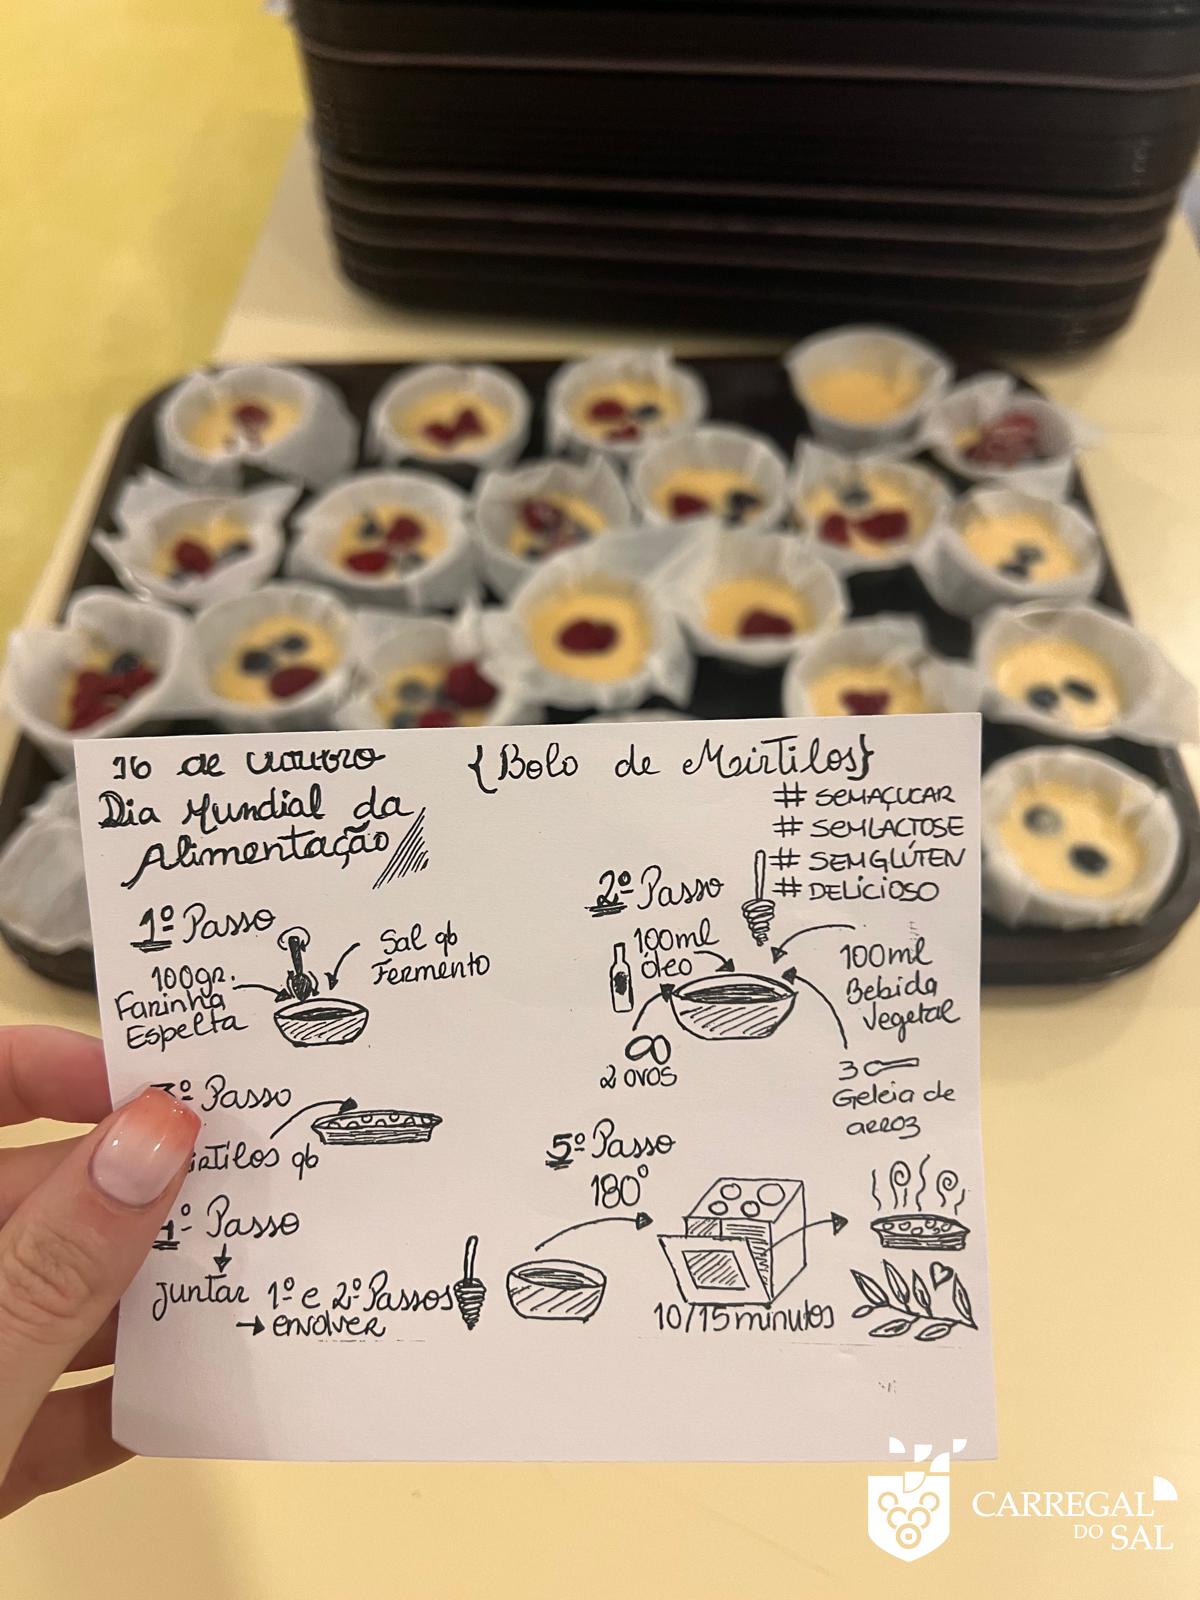 16 de outubro
Dia Mundial da
Alimentação
{Bolo de Mirtilos}
# SEMAÇUCAR
# SEMLACTOSE
# SEMGLÚTEN
# DELICIOSO
1º Passo
100gr.
Farinha
Espelta
Sal qb
Fermento
2º Passo
100ml
óleo
2 ovos
100ml
Bebida
Vegetal
3
Geleia de
arroz
3º Passo
irtilos qb
4º Passo
juntar 1º e 2º Passos
→ envolver
5º Passo
180º
10/15 minutos
CARREGAL
DO SAL